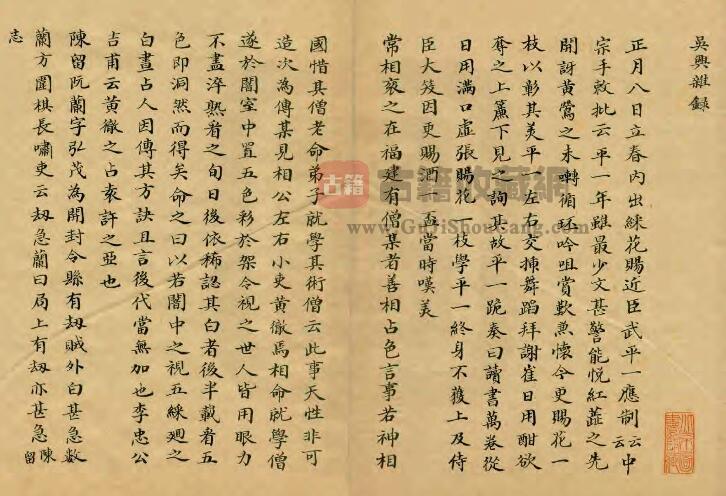 吳興雜録
正月八日立春内出綵花賜近臣武平一應制云云中
宗手敕批云平一年雖最少文甚警能悦紅蘂之先
開訝黄鶯之未囀循環吟咀賞歎兼懷今更賜花一
枝以彰其美平一左右交揷舞蹈拜謝崔日用酣欲
奪之上簾下見之詢其故平一跪奏曰讀書萬卷從
日用滿口虚張賜花一枝學平一終身不獲上及侍
臣大笑因更賜酒一盃當時嘆美
常相衮之在福建有僧某者善相占色言事若神相
國惜其僧老命弟子就學其術僧云此事天性非可
造次為傳某見相公左右小吏黄徹焉相命就學僧
遂於闇室中置五色彩於架令視之世人皆用眼力
不盡淬熟看之旬日後依稀認其白者後半載看五
色即洞然而得矣命之曰以若闇中之視五綵廻之
白晝占人因傳其方訣且言後代當無加也李忠公
吉甫云黄徹之占袁許之亞也
陳留阮蘭字弘茂為開封令縣有刼賊外白甚急數
蘭方圍棋長嘯吏云刼急蘭曰局上有刼亦甚急陳留
志
古籍
古籍收藏網
www.GuJiShouCang.com